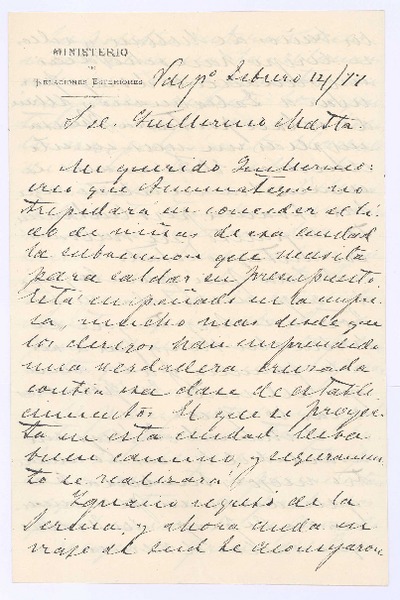 MINISTERIO
DE
RELACIONES ESTERIORES
Valpº Febrero 14/77
Sr. Guillermo Matta.
Mi querido Guillermo:
creo que Amunategui no
trepidara en conceder al li
ceo de niñas de esa ciudad
la subvencion que necesita
para saldar su presupuesto
Está empeñado en la empre
sa, mucho mas desde que
los clerigos han emprendido
una verdadera cruzada
contra esa clase de estable
cimientos. El que se proyec
ta en esta ciudad lleva
buen camino, y seguramen
to se realizará.
Ignacio regresó de la
Serena, y ahora anda en
viaje al sud. Le acompañaron